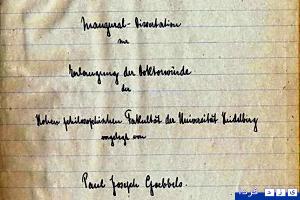 Inaugural-Dissertation
zur
Erlangung der Doktorwürde
der
Hohen philosophischen Fakultät der Universität Heidelberg
vorgelegt von
Paul Joseph Goebbels.
فردا